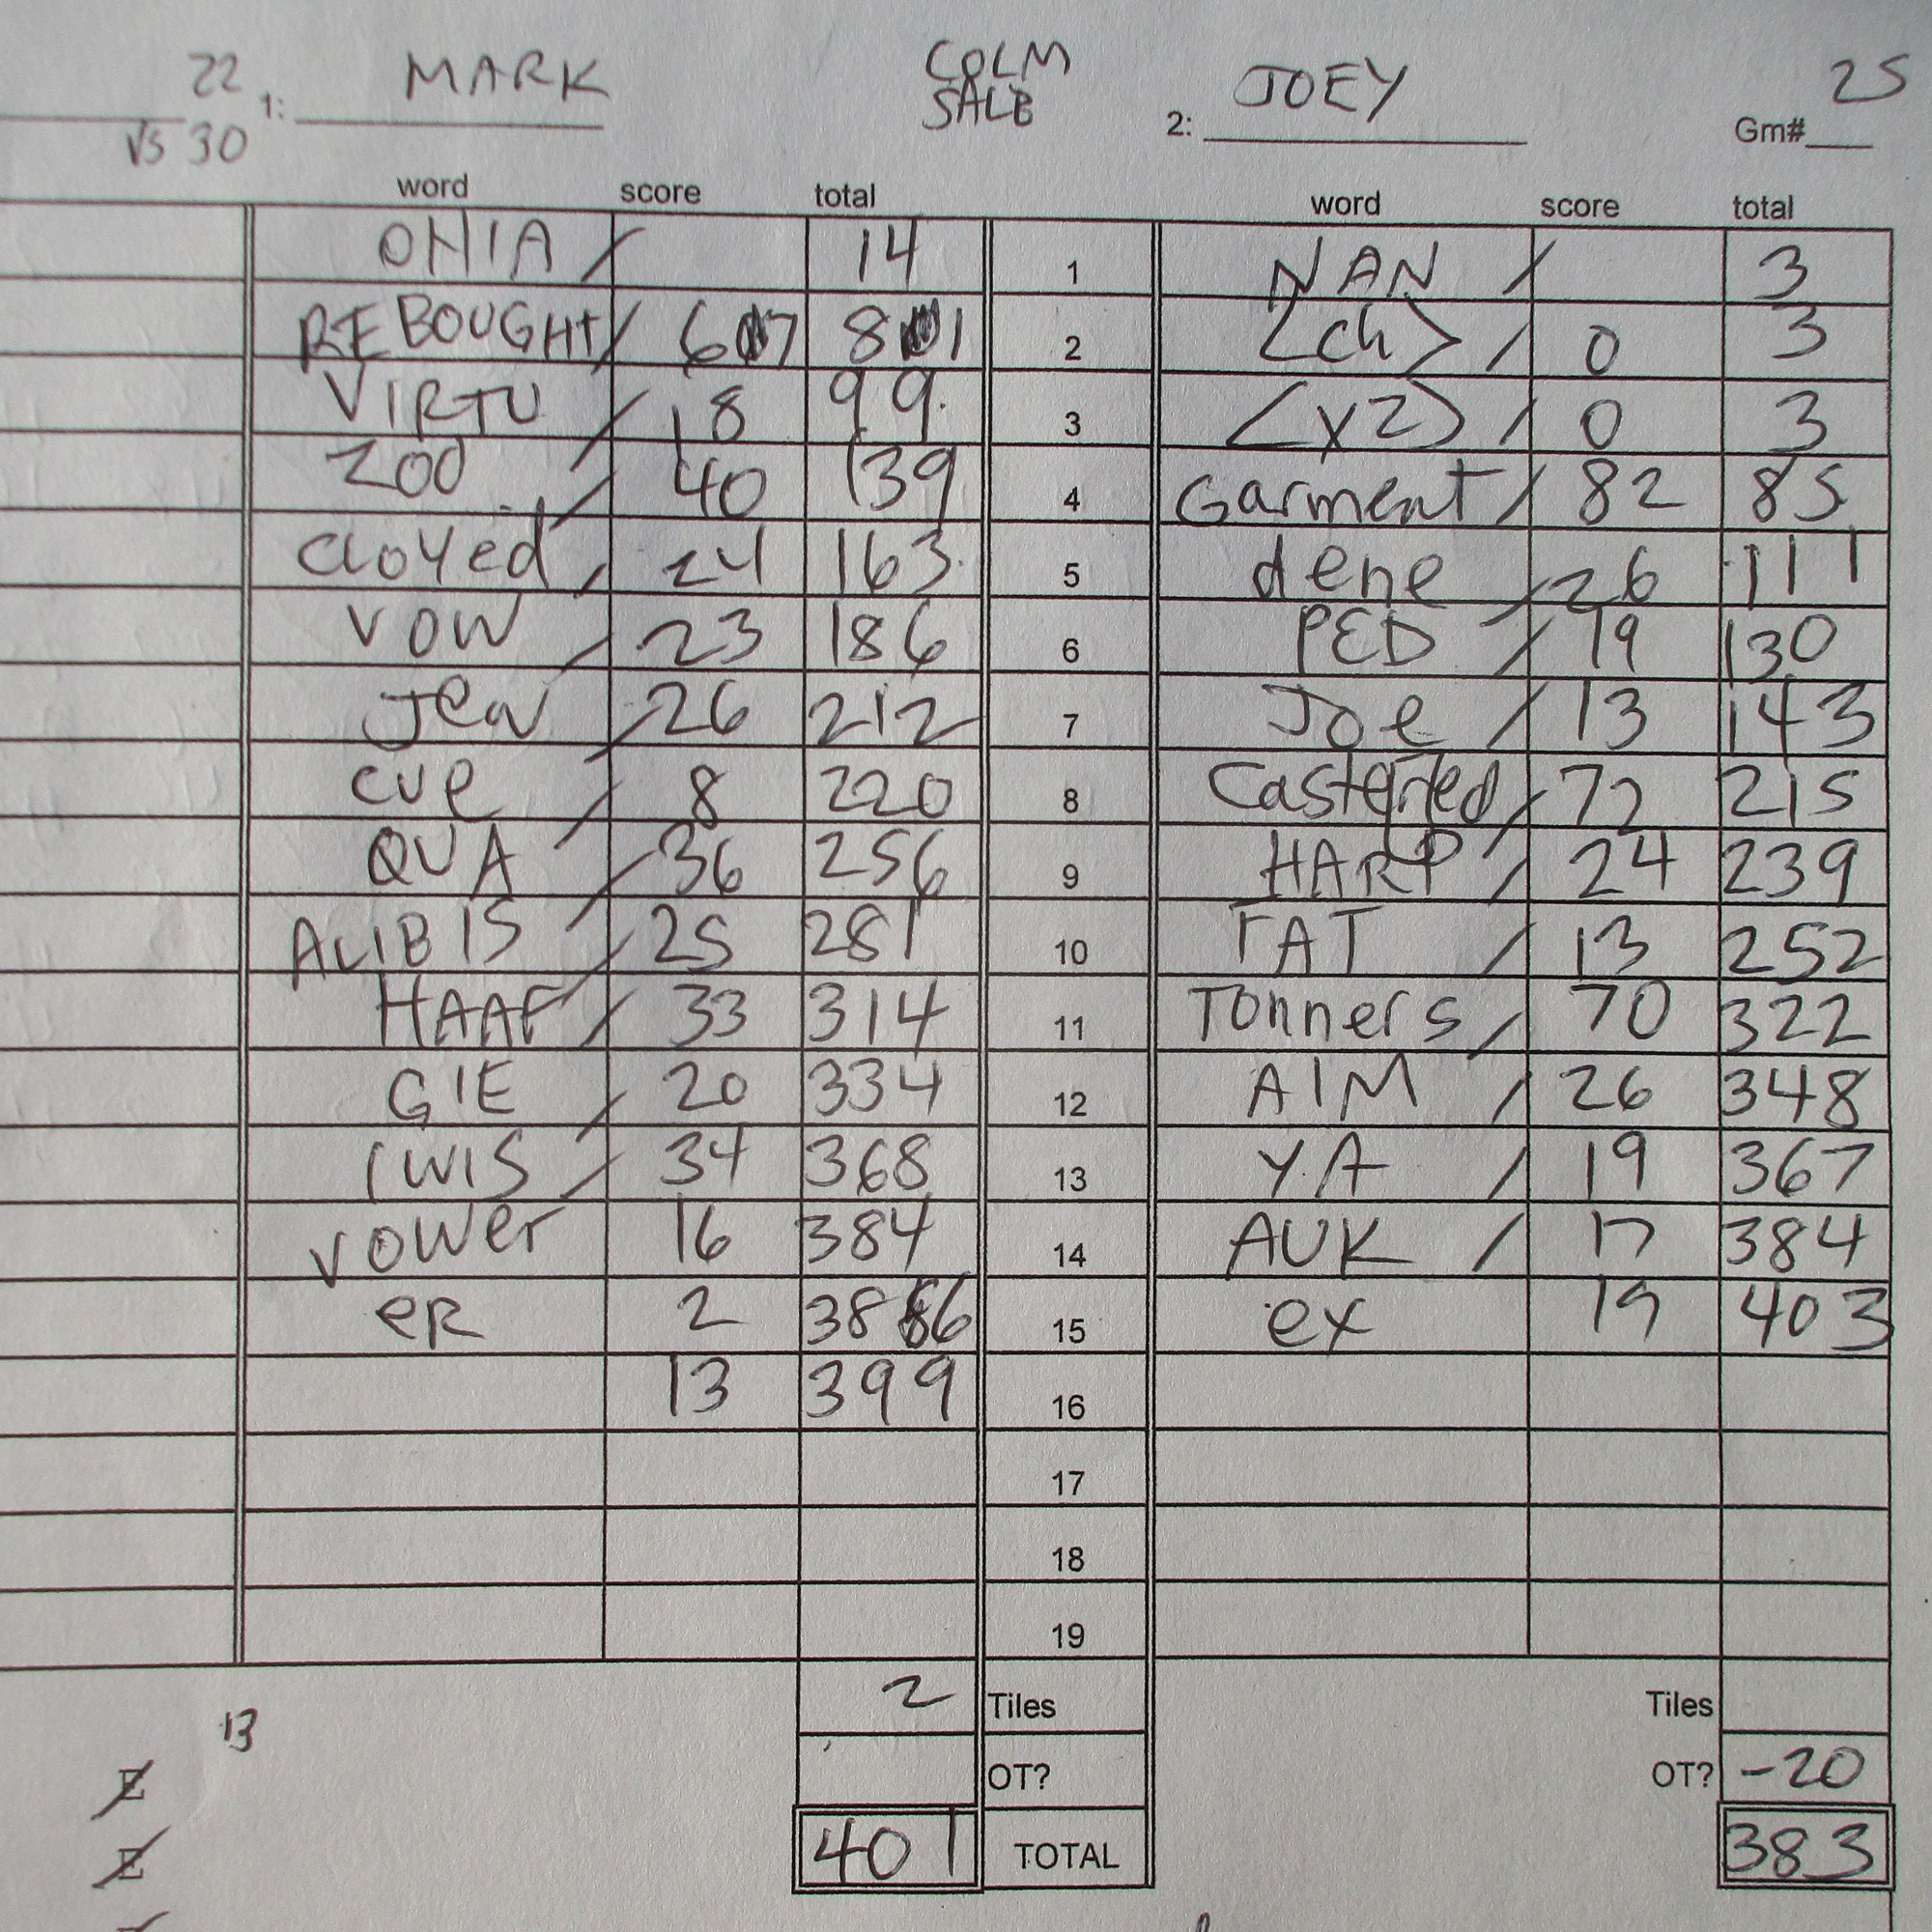 22 MARK COLM JOEY 25
vs 30 1: SALE 2: Gm#
word score total word score total
OHIA / 14 1 NAN / 3
REBOUGHT / 67 81 2 <ch> / 0 3
VIRTU / 18 99 3 <x2> / 0 3
ZOO / 40 139 4 Garment / 82 85
cloyed / 24 163 5 dene / 26 111
VOW / 23 186 6 PED / 19 130
Jew / 26 212 7 Joe / 13 143
cue / 8 220 8 / 72 215
QUA / 36 256 9 HARP / 24 239
ALIBIS / 25 281 10 TAT / 13 252
HAAF / 33 314 11 Tonners / 70 322
GIE / 20 334 12 AIM / 26 348
IWIS / 34 368 13 YA / 19 367
vower 16 384 14 AUK / 17 384
eR 2 386 15 ex 19 403
13 399 16
17
18
19
2 Tiles Tiles
13
OT? OT? -20
E
401 TOTAL 383
E